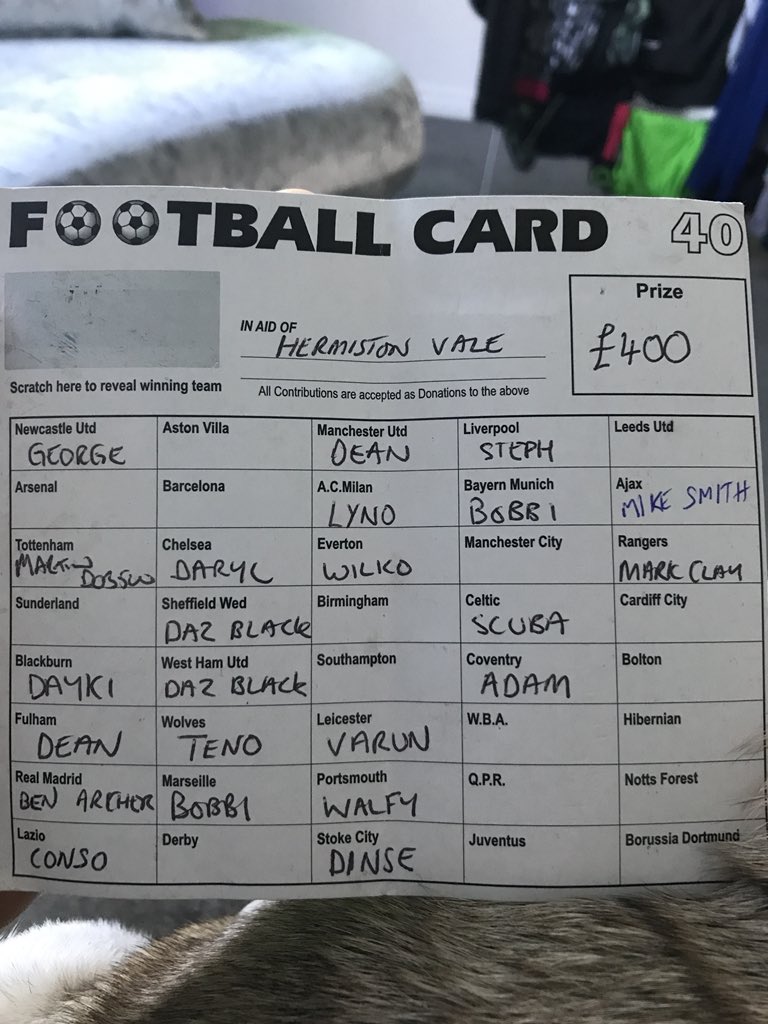 FOOTBALL CARD 40
Prize
£400
IN AID OF HERMISTON VALE
Scratch here to reveal winning team
All Contributions are accepted as Donations to the above
Newcastle Utd Aston Villa Manchester Utd Liverpool Leeds Utd
GEORGE DEAN STEPH
Arsenal Barcelona A.C.Milan Bayern Munich Ajax
LYNO BOBBI MIKE SMITH
Tottenham Chelsea Everton Manchester City Rangers
MARTIN DOBSON DARYL WILKO MARK CLAY
Sunderland Sheffield Wed Birmingham Celtic Cardiff City
DAZ BLACK SCUBA
Blackburn West Ham Utd Southampton Coventry Bolton
DAYKI DAZ BLACK ADAM
Fulham Wolves Leicester W.B.A. Hibernian
DEAN TENO VARUN
Real Madrid Marseille Portsmouth Q.P.R. Notts Forest
BEN ARCHER BOBBI WALFY
Lazio Derby Stoke City Juventus Borussia Dortmund
CONSO DINSE